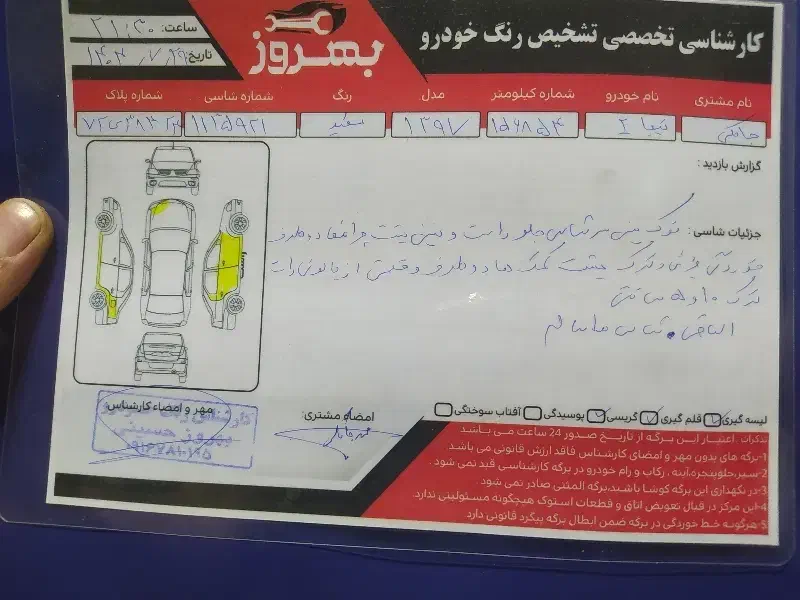 کارشناسی تخصصی تشخیص رنگ خودرو
بهروز
ساعت: ۲۱:۳۰
تاریخ: ۱۴۰۳/۷/۲۹
نام مشتری
نام خودرو
شماره کیلومتر
مدل
رنگ
شماره شاسی
شماره پلاک
تیبا ۲
۱۵۶۸۵۴
۱۳۹۷
سفید
گزارش بازدید :
جزئیات شاسی: نوک سینی سر شاسی جلو راست و سینی پشت چراغها دو طرف
الباقی شاسی ها سالم
لیسه گیری
قلم گیری
گریسی
پوسیدگی
آفتاب سوختگی
امضاء مشتری:
مهر و امضاء کارشناس
بهروز حسینی
تذکرات : اعتبار این برگه از تاریخ صدور 24 ساعت می باشد
1-برگه های بدون مهر و امضای کارشناس فاقد ارزش قانونی می باشد
2-سپر،جلوپنجره،آینه ، رکاب و رام خودرو در برگه کارشناسی قید نمی شود .
3-در نگهداری این برگه کوشا باشید،برگه المثنی صادر نمی شود .
4-این مرکز در قبال تعویض اتاق و قطعات استوک هیچگونه مسئولیتی ندارد.
5-هرگونه خط خوردگی در برگه ضمن ابطال برگه پیگرد قانونی دارد